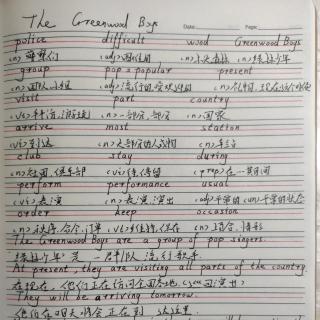 The Greenwood Boys
Date: Page:
police difficult wood Greenwood Boys
(n)警察们 (adj)困难的 (n)木头 森林 (n)绿林少年
group pop = popular present
(n)团队,小组 (adj)流行的,受欢迎的 (n)礼物,现在
visit part country
(n) (n)一部分,部分 (n)国家
arrive most station
(vi)到达 (n)大部分的 (n)车站
club stay during
(n)社团,俱乐部 (vi)待,停留 (prep)在…期间
perform performance usual
(vi)表演 (n)表演,演出 (adj)平常的 (n)平常的状态
order keep occasion
(n)秩序,命令,订单 (n)场合
The Greenwood Boys are a group of pop singers.
绿林少年 是 一 流行歌手.
At present, they are visiting all parts of the country.
在现在, 他们正在访问全国各地
They will be arriving tomorrow.
他们在明天将会正在到达这里.